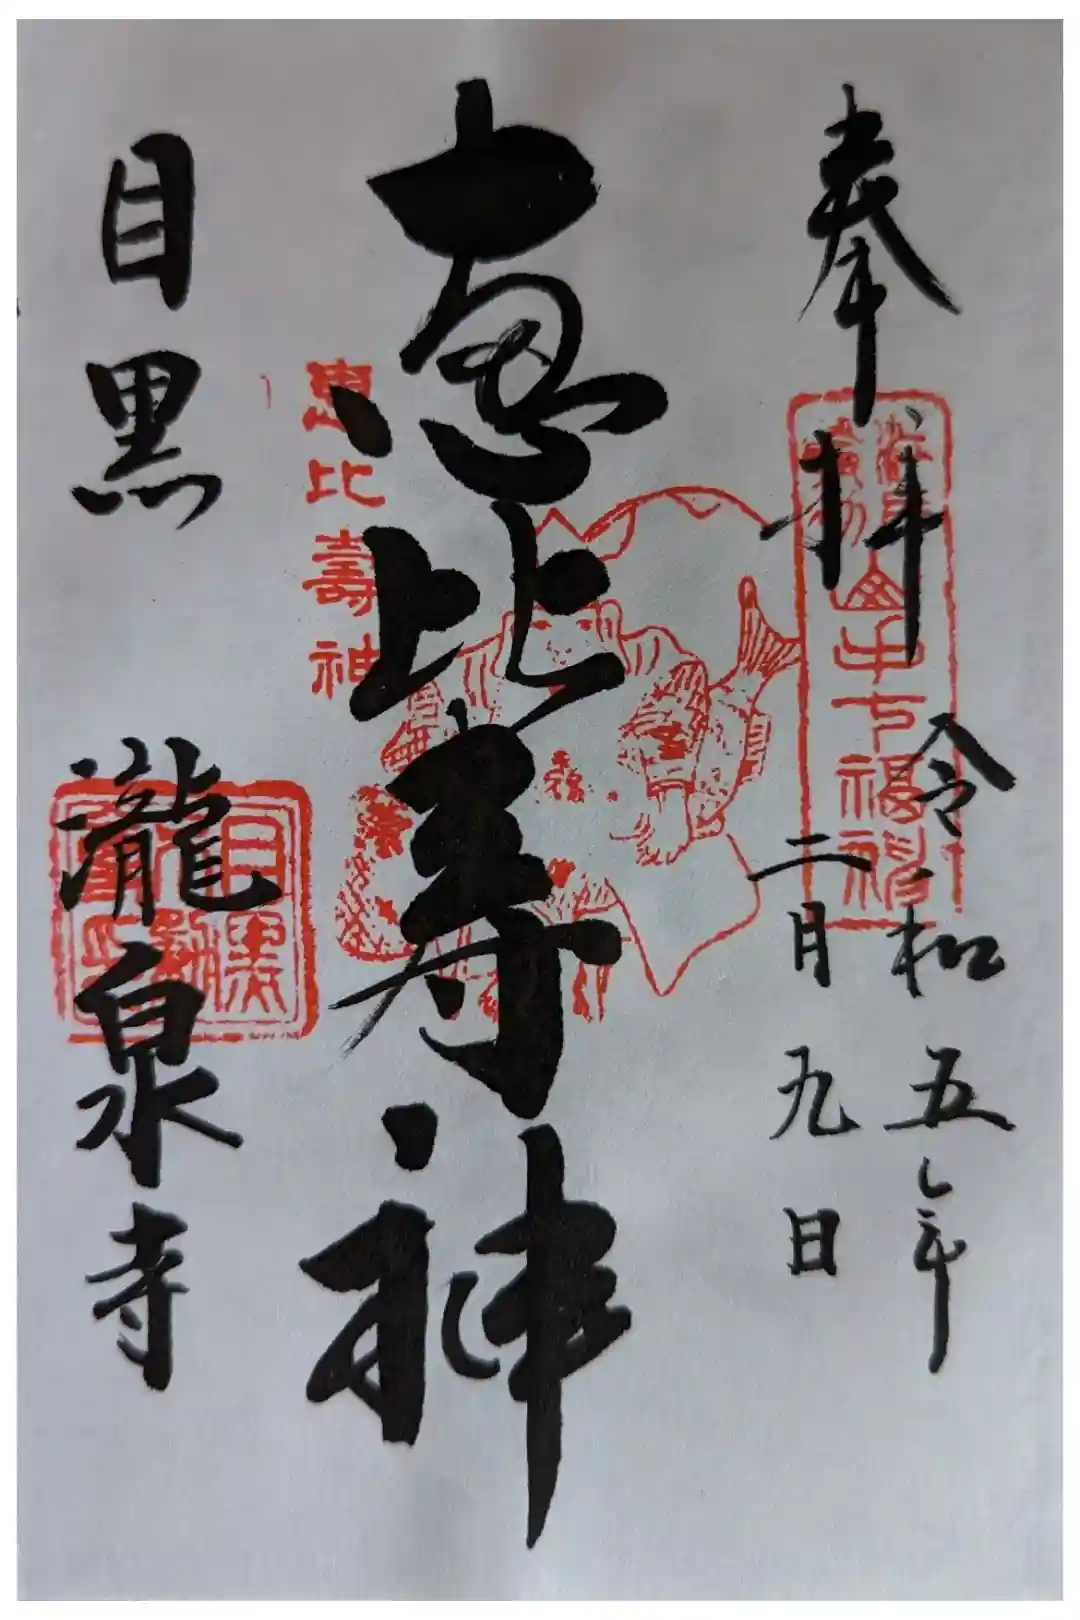 奉拝
令和五年
二月九日
恵比寿神
恵比壽神
目黒
瀧泉寺